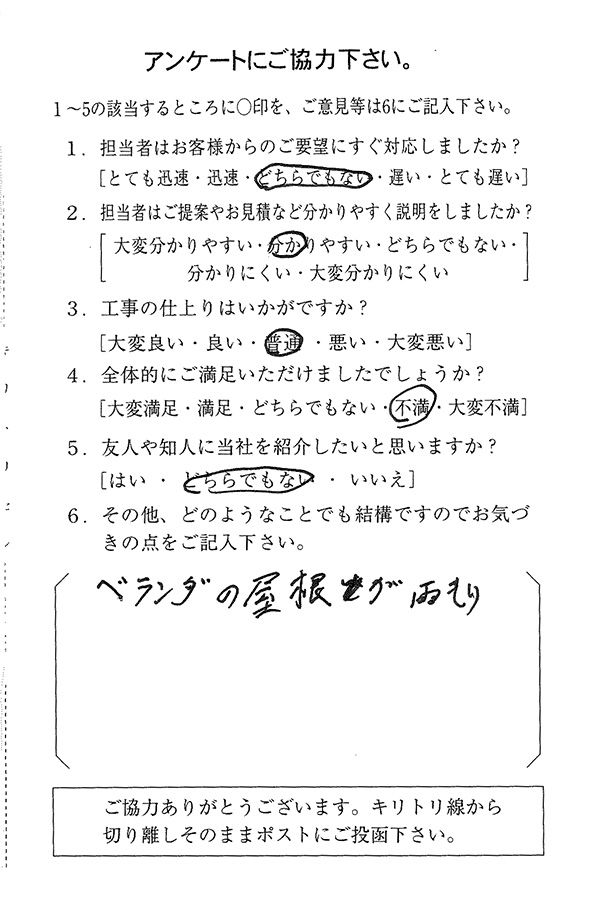 アンケートにご協力下さい。
1～5の該当するところに○印を、ご意見等は6にご記入下さい。
1．担当者はお客様からのご要望にすぐ対応しましたか？
[とても迅速・迅速・どちらでもない・遅い・とても遅い]
2．担当者はご提案やお見積など分かりやすく説明をしましたか？
[大変分かりやすい・分かりやすい・どちらでもない・
分かりにくい・大変分かりにくい]
3．工事の仕上りはいかがですか？
[大変良い・良い・普通・悪い・大変悪い]
4．全体的にご満足いただけましたでしょうか？
[大変満足・満足・どちらでもない・不満・大変不満]
5．友人や知人に当社を紹介したいと思いますか？
[はい ・ どちらでもない ・ いいえ]
6．その他、どのようなことでも結構ですのでお気づ
きの点をご記入下さい。
ベランダの屋根が雨もり
ご協力ありがとうございます。キリトリ線から
切り離しそのままポストにご投函下さい。